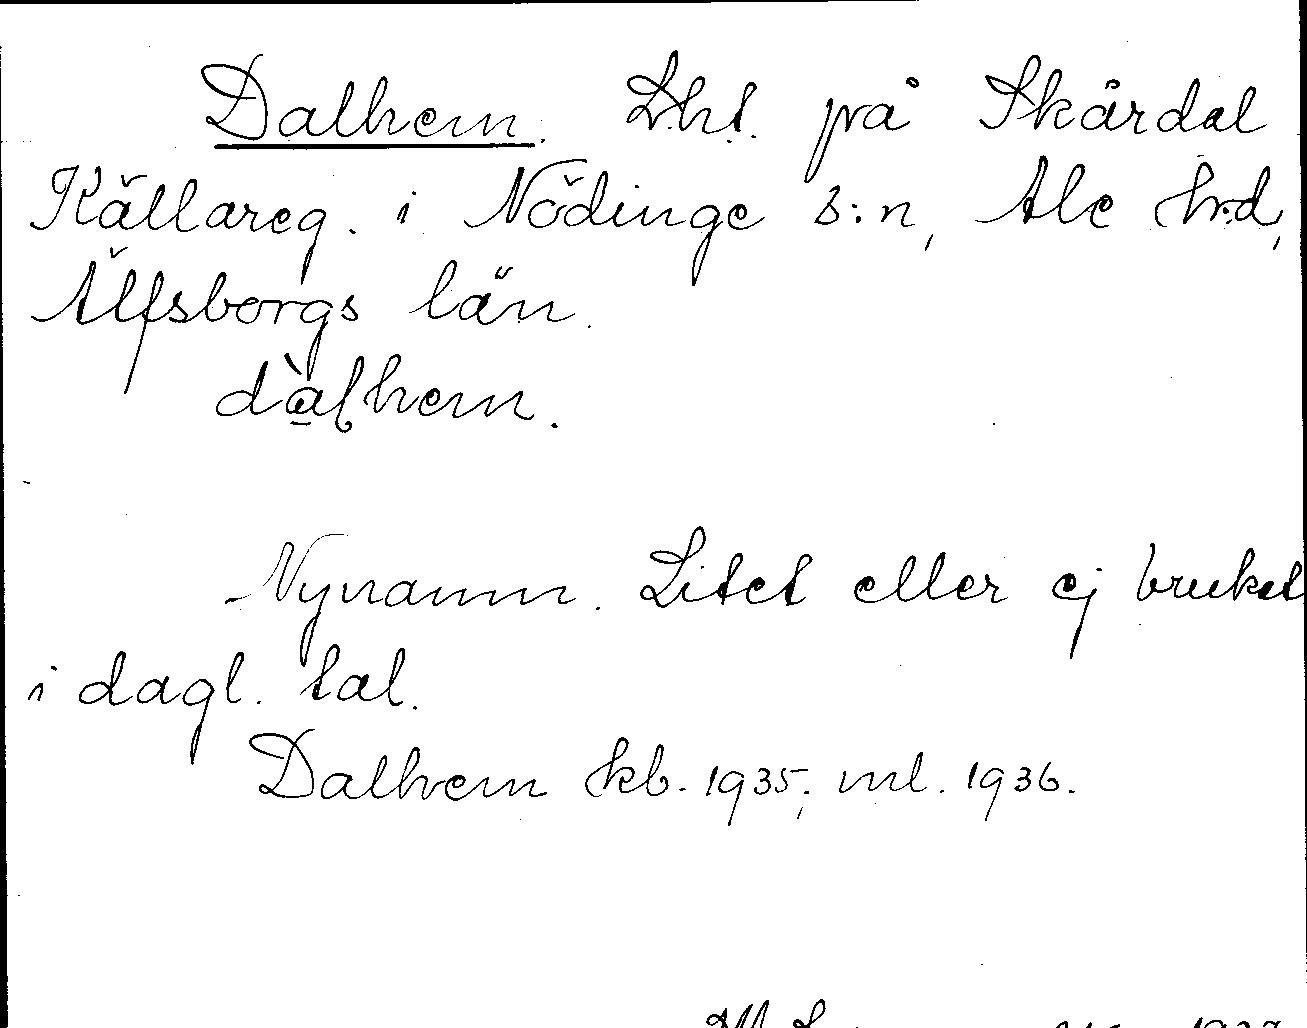 Dalhem. Lht. på Skårdal
Källareg. i Nödinge s:n, Ale hrd,
Älfsborgs län.
dàlhem.
Nynamn. Litet eller ej bruket
i dagl. tal.
Dalhem kb. 1935; ml. 1936.